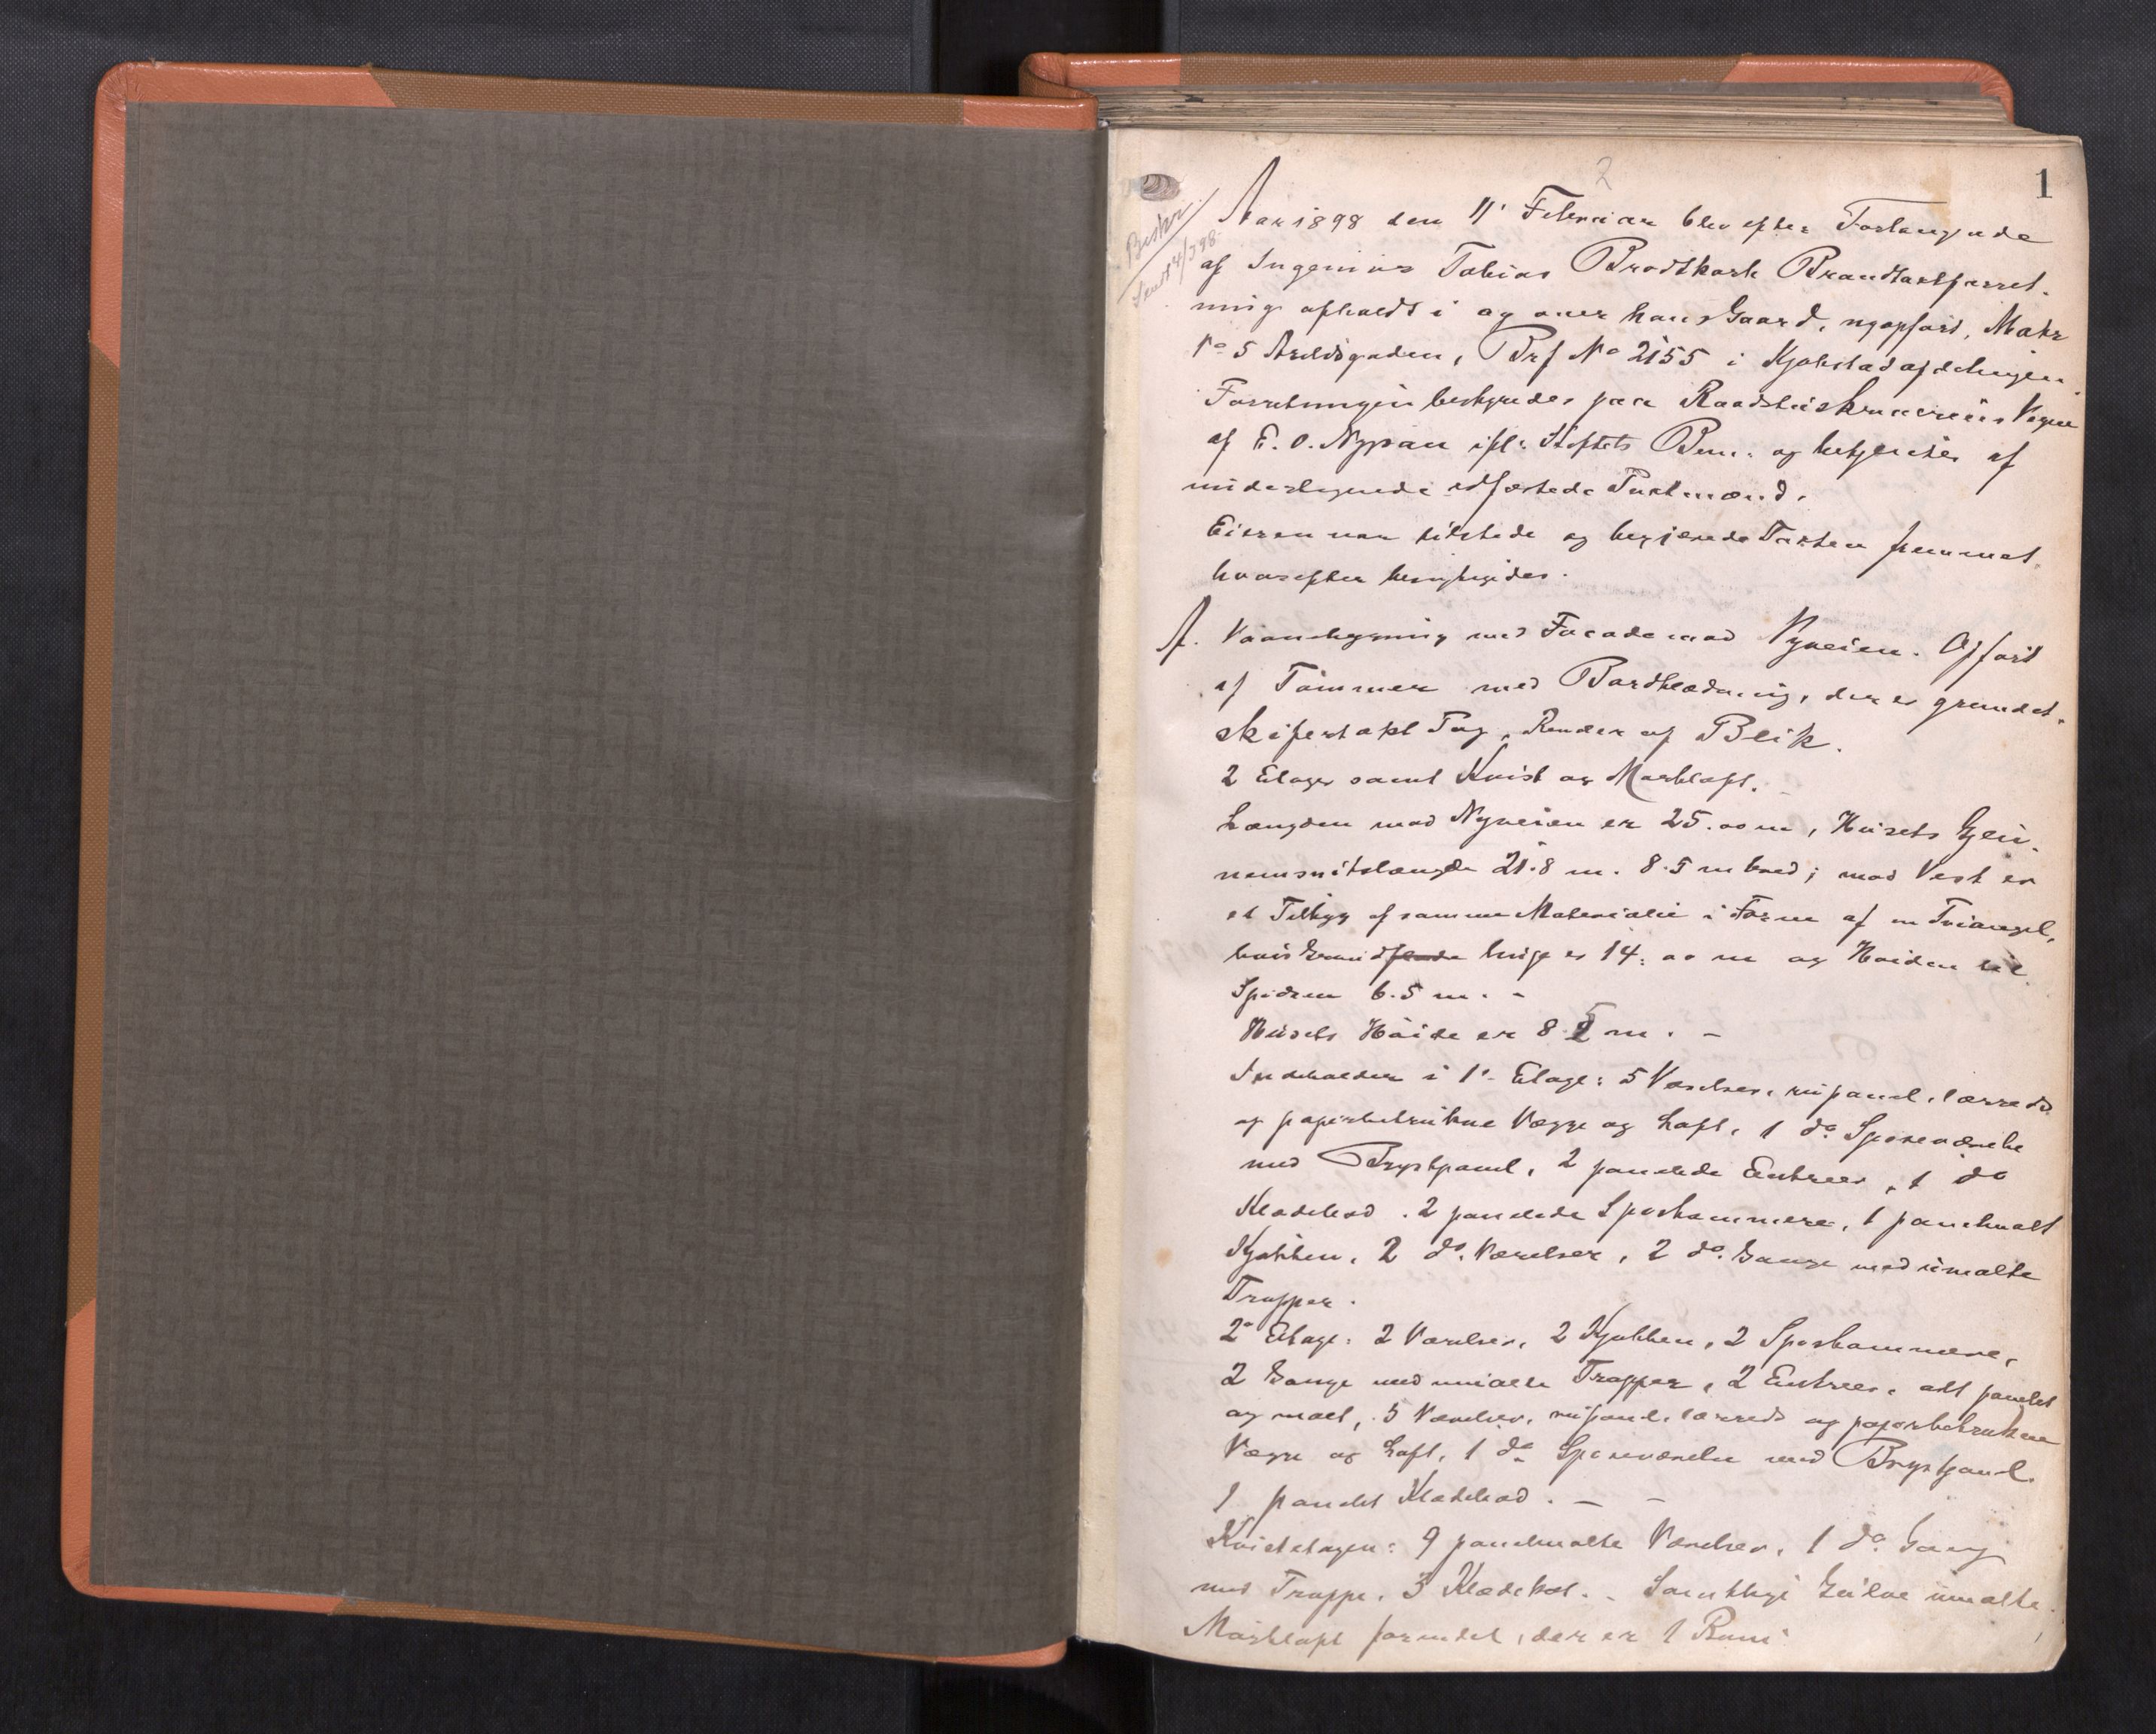 1
2
Beskr.
Sendt 4/3 98
Aar 1898 den 11' Februar blev efter Forlangende
af Ingeniør Tobias Brodtkorb Brandtaxtforret-
ning afholdt i og over hans Gaard, nyopført, Matr
No 5 Arildsgaden, Brf No 2155 i Kjøbstadafdelingen.
Forretningen bestyredes paa Raadstuskriverens Vegne
af E. O. Nypan ifl: Stiftets Bem: og betjentes af
undertegnede edfæstede Taxtmænd.
Eieren var tilstede og begjærede Taxten fremmet,
hvorefter besigtigedes.
A. Vaaningsbygning med Facade mod Nyveien. Opført
af Tømmer med Bordklædning, der er grundet,
skifertækt Tag, Render af Blik.
2 Etager samt Kvist og Mørkloft. -
Længden mod Nyveien er 25.00 m, Husets Gjen-
nemsnitslængde 21.8 m. 8.5 m bred; mod Vest er
et Tilbyg af samme Materiale i Form af en Triangel,
hvis Grundlinje er 14.00 m og Høiden til
Spidsen 6.5 m. -
Husets Høide er 8.5 m. -
Indeholder i 1' Etage: 5 Værelser, rupanel, lærreds
og papirbetrukne Vægge og Loft, 1 do Spiseværelse
med Brystpanel, 2 panelede Entreer, 1 do
Klædebod. 2 panelede Spiskammere, 1 panelmalt
Kjøkken, 2 do. Værelser, 2 do. Gange med umalte
Trapper.
2' Etage: 2 Værelser, 2 Kjøkken, 2 Spiskammere,
2 Gange med umalte Trapper, 2 Entreer, alt panelet
og malt, 5 Værelser, rupanel, lærreds og papirbetrukne
Vægge og Loft, 1 do Spiseværelse med Brystpanel.
1 panelet Klædebod. - -
Kvistetagen: 9 panelmalte Værelser, 1 do. Gang
med Trappe, 3 Klædekot. - Samtlige Gulve umalte.
Mørkloft forundet, der er 1 Rum